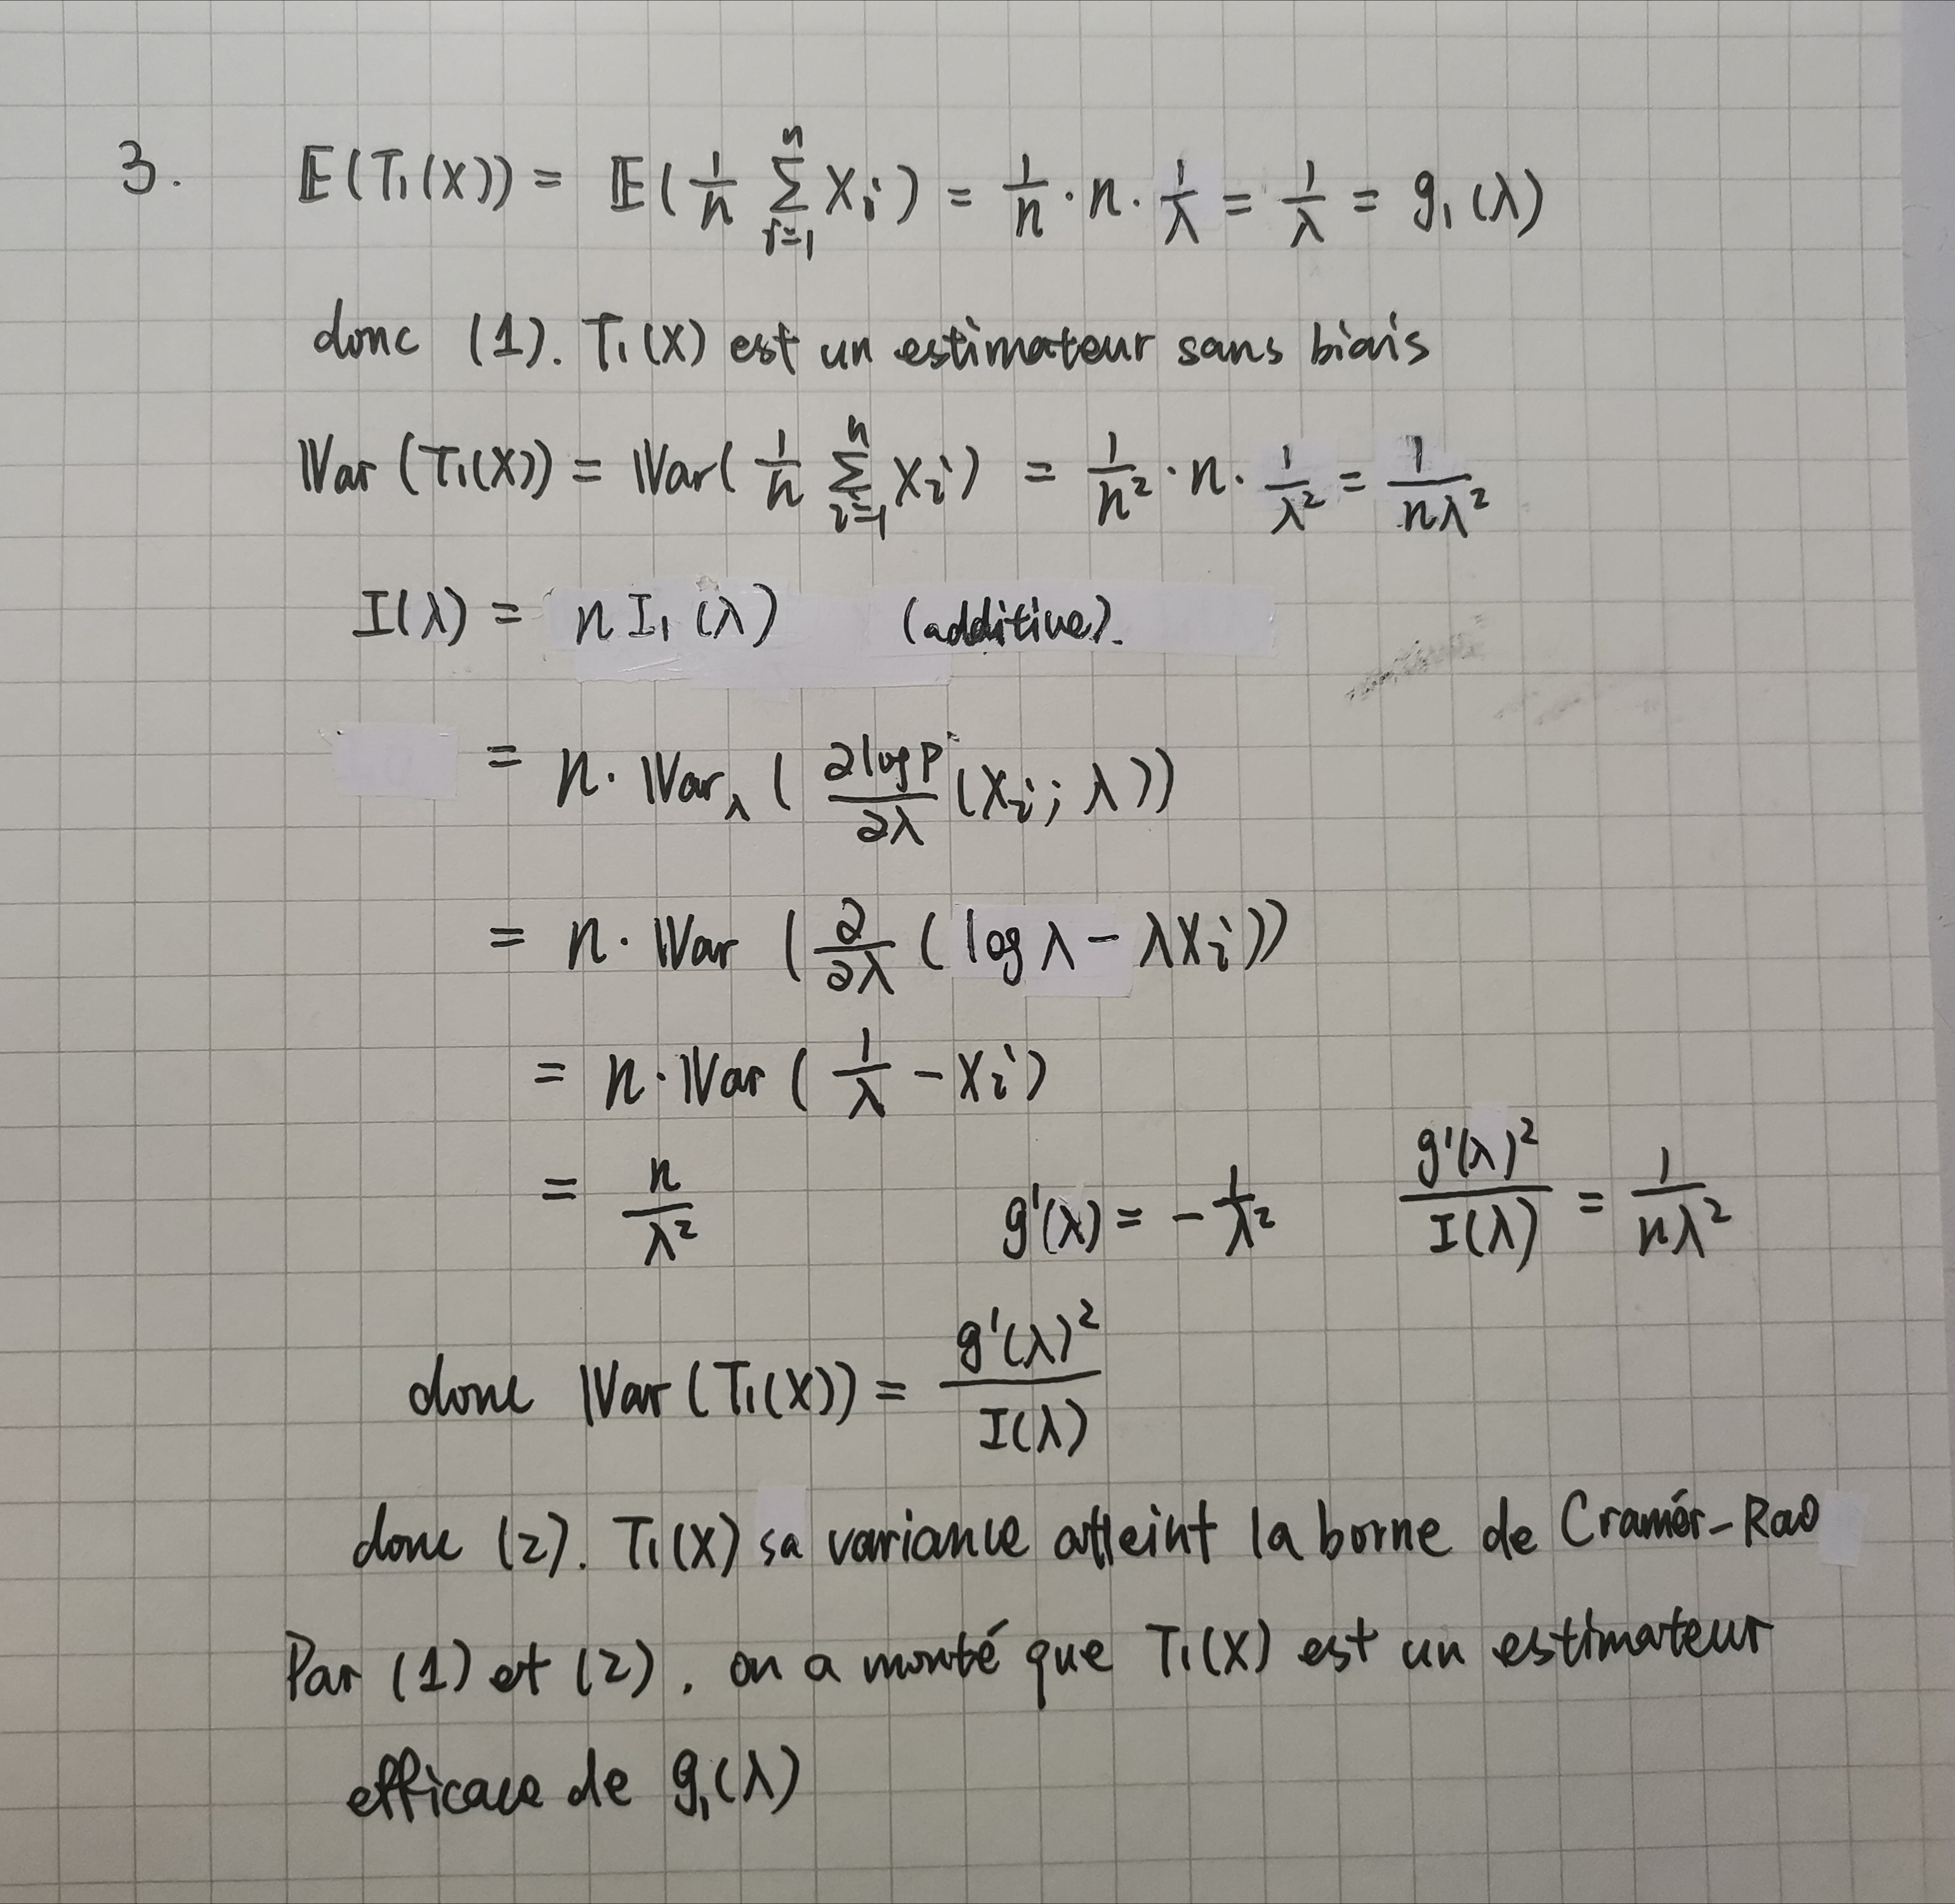 3. 𝔼(T₁(X)) = 𝔼(1/n ∑_{i=1}^{n} Xᵢ) = 1/n · n · 1/λ = 1/λ = g₁(λ)
donc (1). T₁(X) est un estimateur sans biais
Var(T₁(X)) = Var(1/n ∑_{i=1}^{n} Xᵢ) = 1/n² · n · 1/λ² = 1/(nλ²)
I(λ) = n I₁(λ) (additive).
= n · Var_λ(∂log p/∂λ (Xᵢ; λ))
= n · Var(∂/∂λ (log λ − λXᵢ))
= n · Var(1/λ − Xᵢ)
= n/λ² g'(λ) = −1/λ² g'(λ)²/I(λ) = 1/(nλ²)
donc Var(T₁(X)) = g'(λ)²/I(λ)
donc (2). T₁(X) sa variance atteint la borne de Cramér-Rao
Par (1) et (2), on a monté que T₁(X) est un estimateur
efficace de g₁(λ)